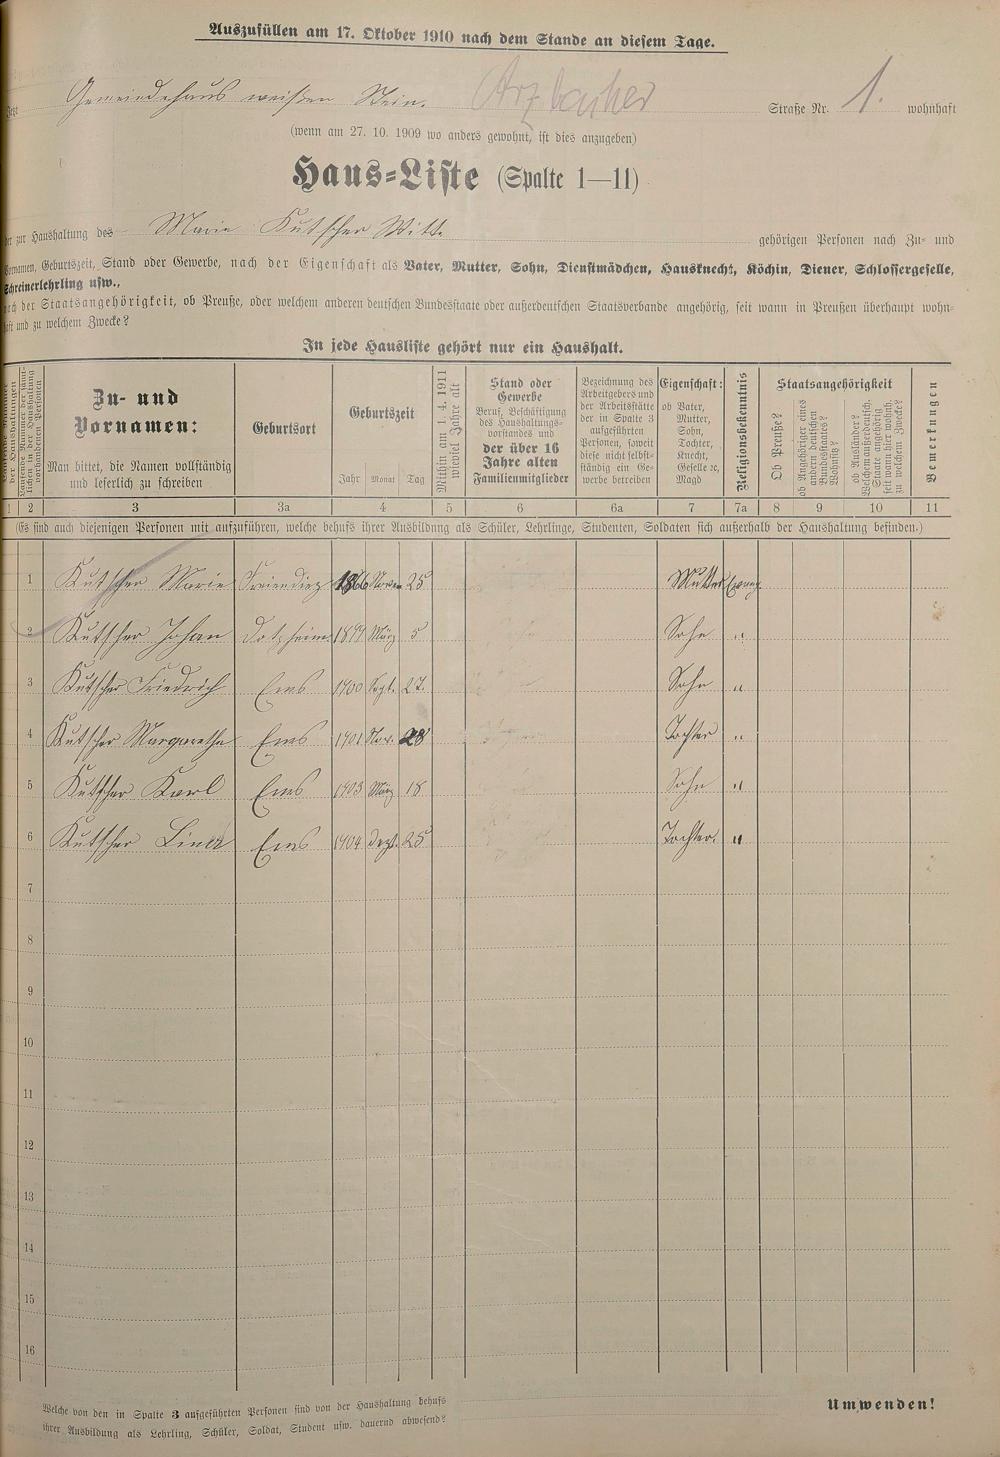 Auszufüllen am 17. Oktober 1910 nach dem Stande an diesem Tage.
Gemeindehaus weißen Stein. Arzbacher Straße Nr. 1. wohnhaft
(wenn am 27. 10. 1909 wo anders gewohnt, ist dies anzugeben)
Haus=Liste (Spalte 1—11)
der zur Haushaltung des Marie Kutscher Witt. gehörigen Personen nach Zu- und
Vornamen, Geburtszeit, Stand oder Gewerbe, nach der Eigenschaft als Vater, Mutter, Sohn, Dienstmädchen, Hausknecht, Köchin, Diener, Schlossergeselle,
Schreinerlehrling usw.,
nach der Staatsangehörigkeit, ob Preuße, oder welchem anderen deutschen Bundesstaate oder außerdeutschen Staatsverbande angehörig, seit wann in Preußen überhaupt wohn-
haft und zu welchem Zwecke?
In jede Hausliste gehört nur ein Haushalt.
der Haushaltungen
Laufende Nummer der sämt-
lichen in der Haushaltung
vorhandenen Personen
Zu- und
Vornamen:
Man bittet, die Namen vollständig
und leserlich zu schreiben
Geburtsort
Geburtszeit
Jahr Monat Tag
Mithin am 1. 4. 1911
wieviel Jahre alt
Stand oder
Gewerbe
Beruf, Beschäftigung
des Haushaltungs-
vorstandes und
der über 16
Jahre alten
Familienmitglieder
Bezeichnung des
Arbeitgebers und
der Arbeitsstätte
der in Spalte 3
aufgeführten
Personen, soweit
diese nicht selbst-
ständig ein Ge-
werbe betreiben
Eigenschaft:
ob Vater,
Mutter,
Sohn,
Tochter,
Knecht,
Geselle ꝛc,
Magd
Religionsbekenntnis
Staatsangehörigkeit
Ob Preuße?
ob Angehöriger eines
andern deutschen
Bundesstaates?
Wohnsitz?
ob Ausländer?
Welchem außerdeutsch.
Staate angehörig
seit wann hier wohnh.
zu welchem Zwecke?
Bemerkungen
1 2 3 3a 4 5 6 6a 7 7a 8 9 10 11
(Es sind auch diejenigen Personen mit aufzuführen, welche behufs ihrer Ausbildung als Schüler, Lehrlinge, Studenten, Soldaten sich außerhalb der Haushaltung befinden.)
1 Kutscher Marie Freiendiez 1866 Novem 25 Mutter Evang
2 Kutscher Johan Dotzheim 1899 März 5 Sohn "
3 Kutscher Friedrich Ems 1900 Sept. 27. Sohn "
4 Kutscher Margarethe Ems 1901 Nov. 28 Tochter "
5 Kutscher Karl Ems 1903 März 18 Sohn "
6 Kutscher Lina Ems 1904 Dezt. 25 Tochter. "
7
8
9
10
11
12
13
14
15
16
Welche von den in Spalte 3 aufgeführten Personen sind von der Haushaltung behufs
ihrer Ausbildung als Lehrling, Schüler, Soldat, Student usw. dauernd abwesend?
Umwenden!